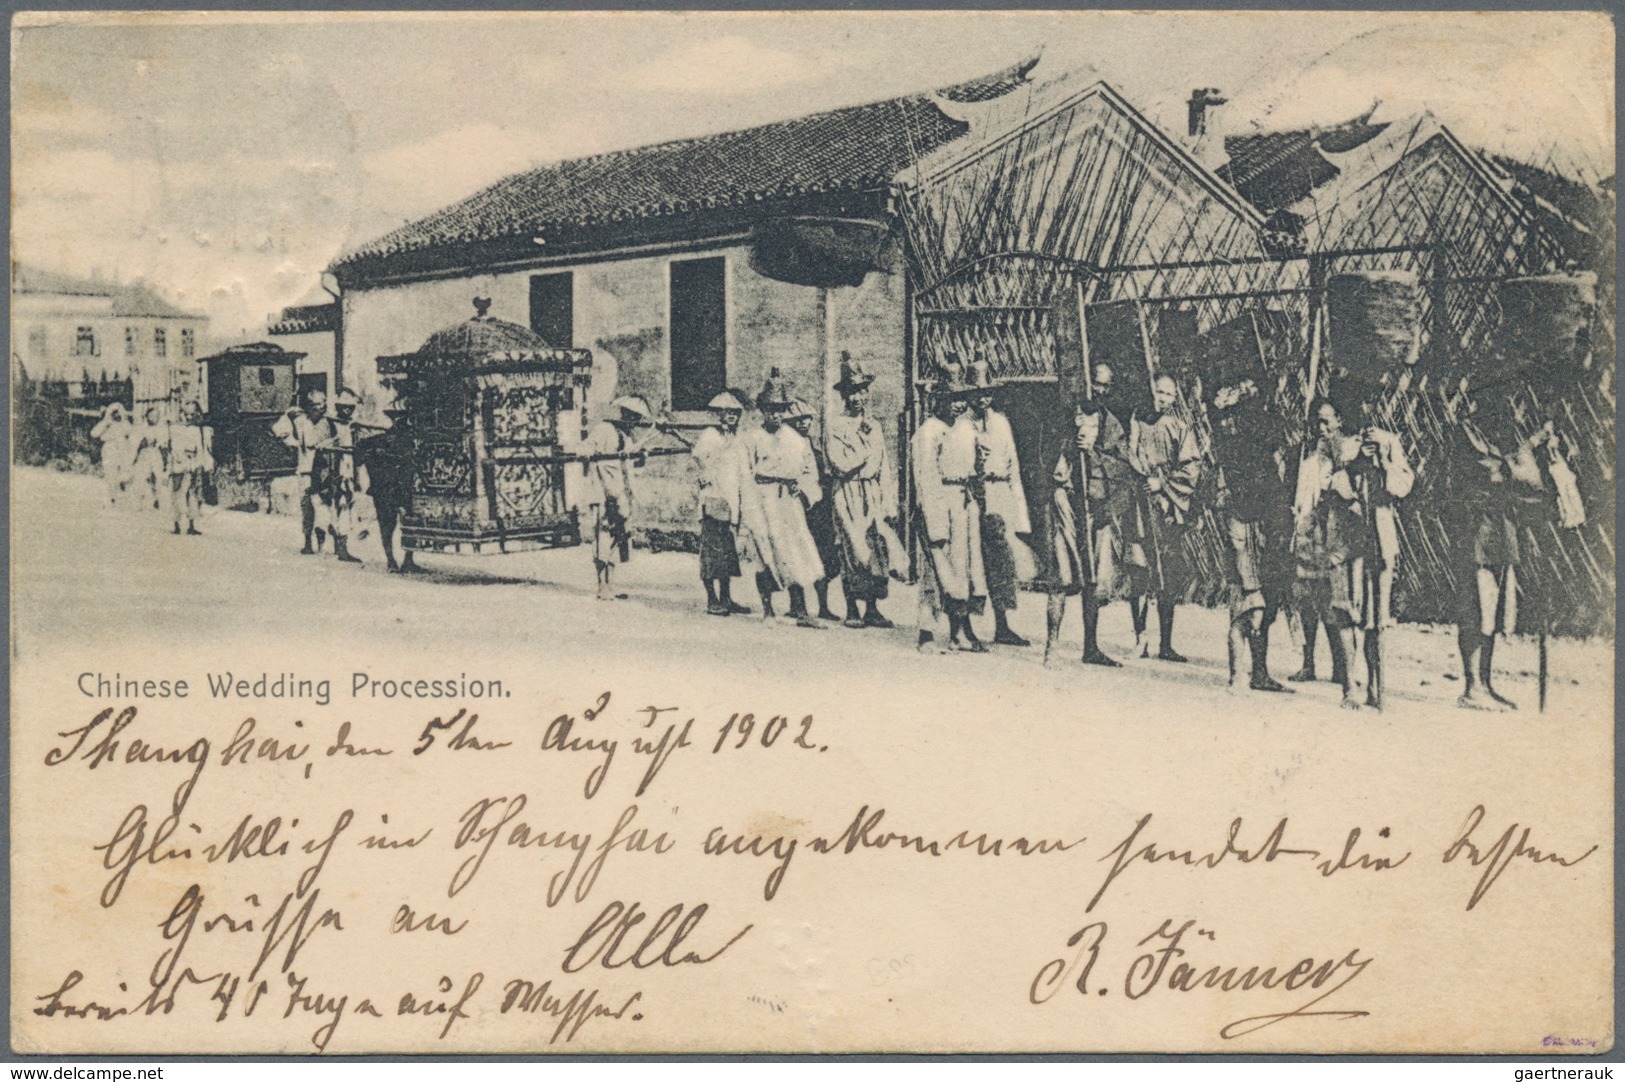 Chinese Wedding Procession.
Shanghai, den 5ten August 1902.
Glücklich in Schanghai angekommen sendet die besten
Grüsse an Alle
R. Jänner
bereits 45 Tage auf Wasser.
delcampe.net
gaertnerauk